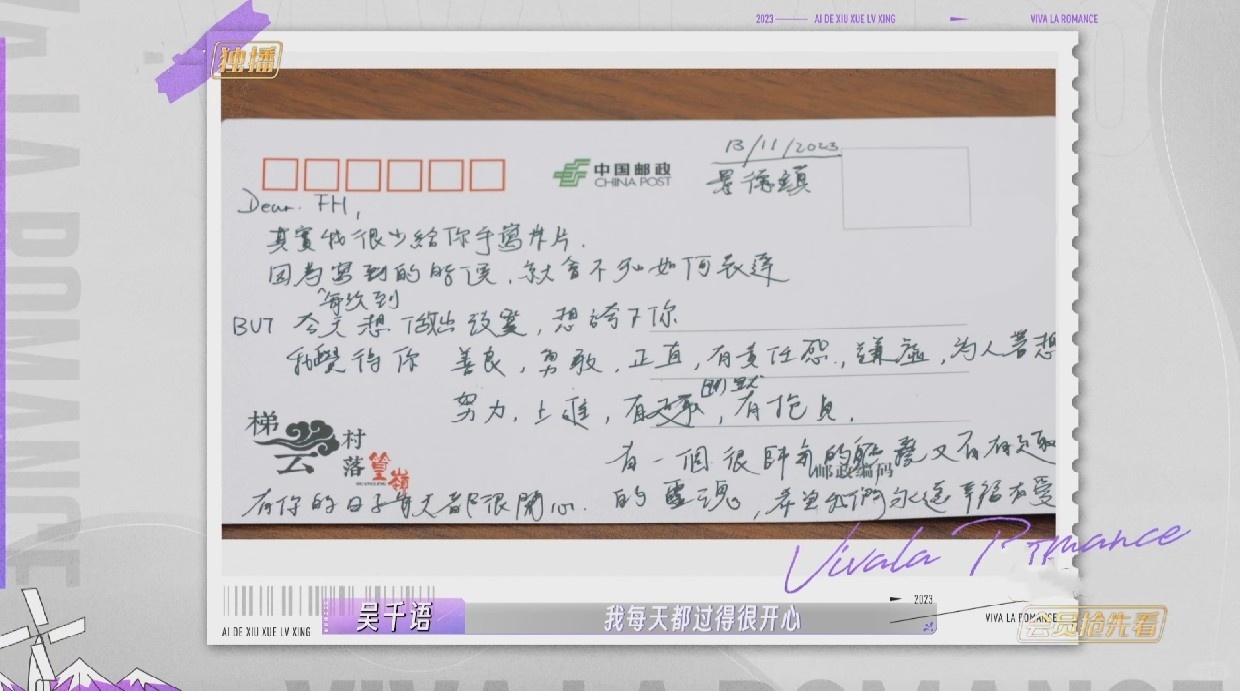 2023 AI DE XIU XUE LV XING VIVA LA ROMANCE
独播
13/11/2023
中国邮政
CHINA POST
景德鎮
Dear FH,
其實我很少給你手寫卡片.
因為寫到的時候,就會不知如何表達
每次到
BUT 今天想做出改變,想誇下你
我覺得你 善良,勇敢,正直,有責任感,謙虛,為人著想
幽默
努力,上進,有,有抱負.
梯云村落
篁嶺
有一個很帥氣的軀殼又有有趣
邮政编码
的靈魂,希望我們永遠幸福有愛
有你的日子每天都很開心.
Vivala Romance
2023
AI DE XIU XUE LV XING
吴千语
我每天都过得很开心
VIVA LA ROMANCE
会员抢先看
VIVA LA ROMANCE
VIVA LA ROMANCE